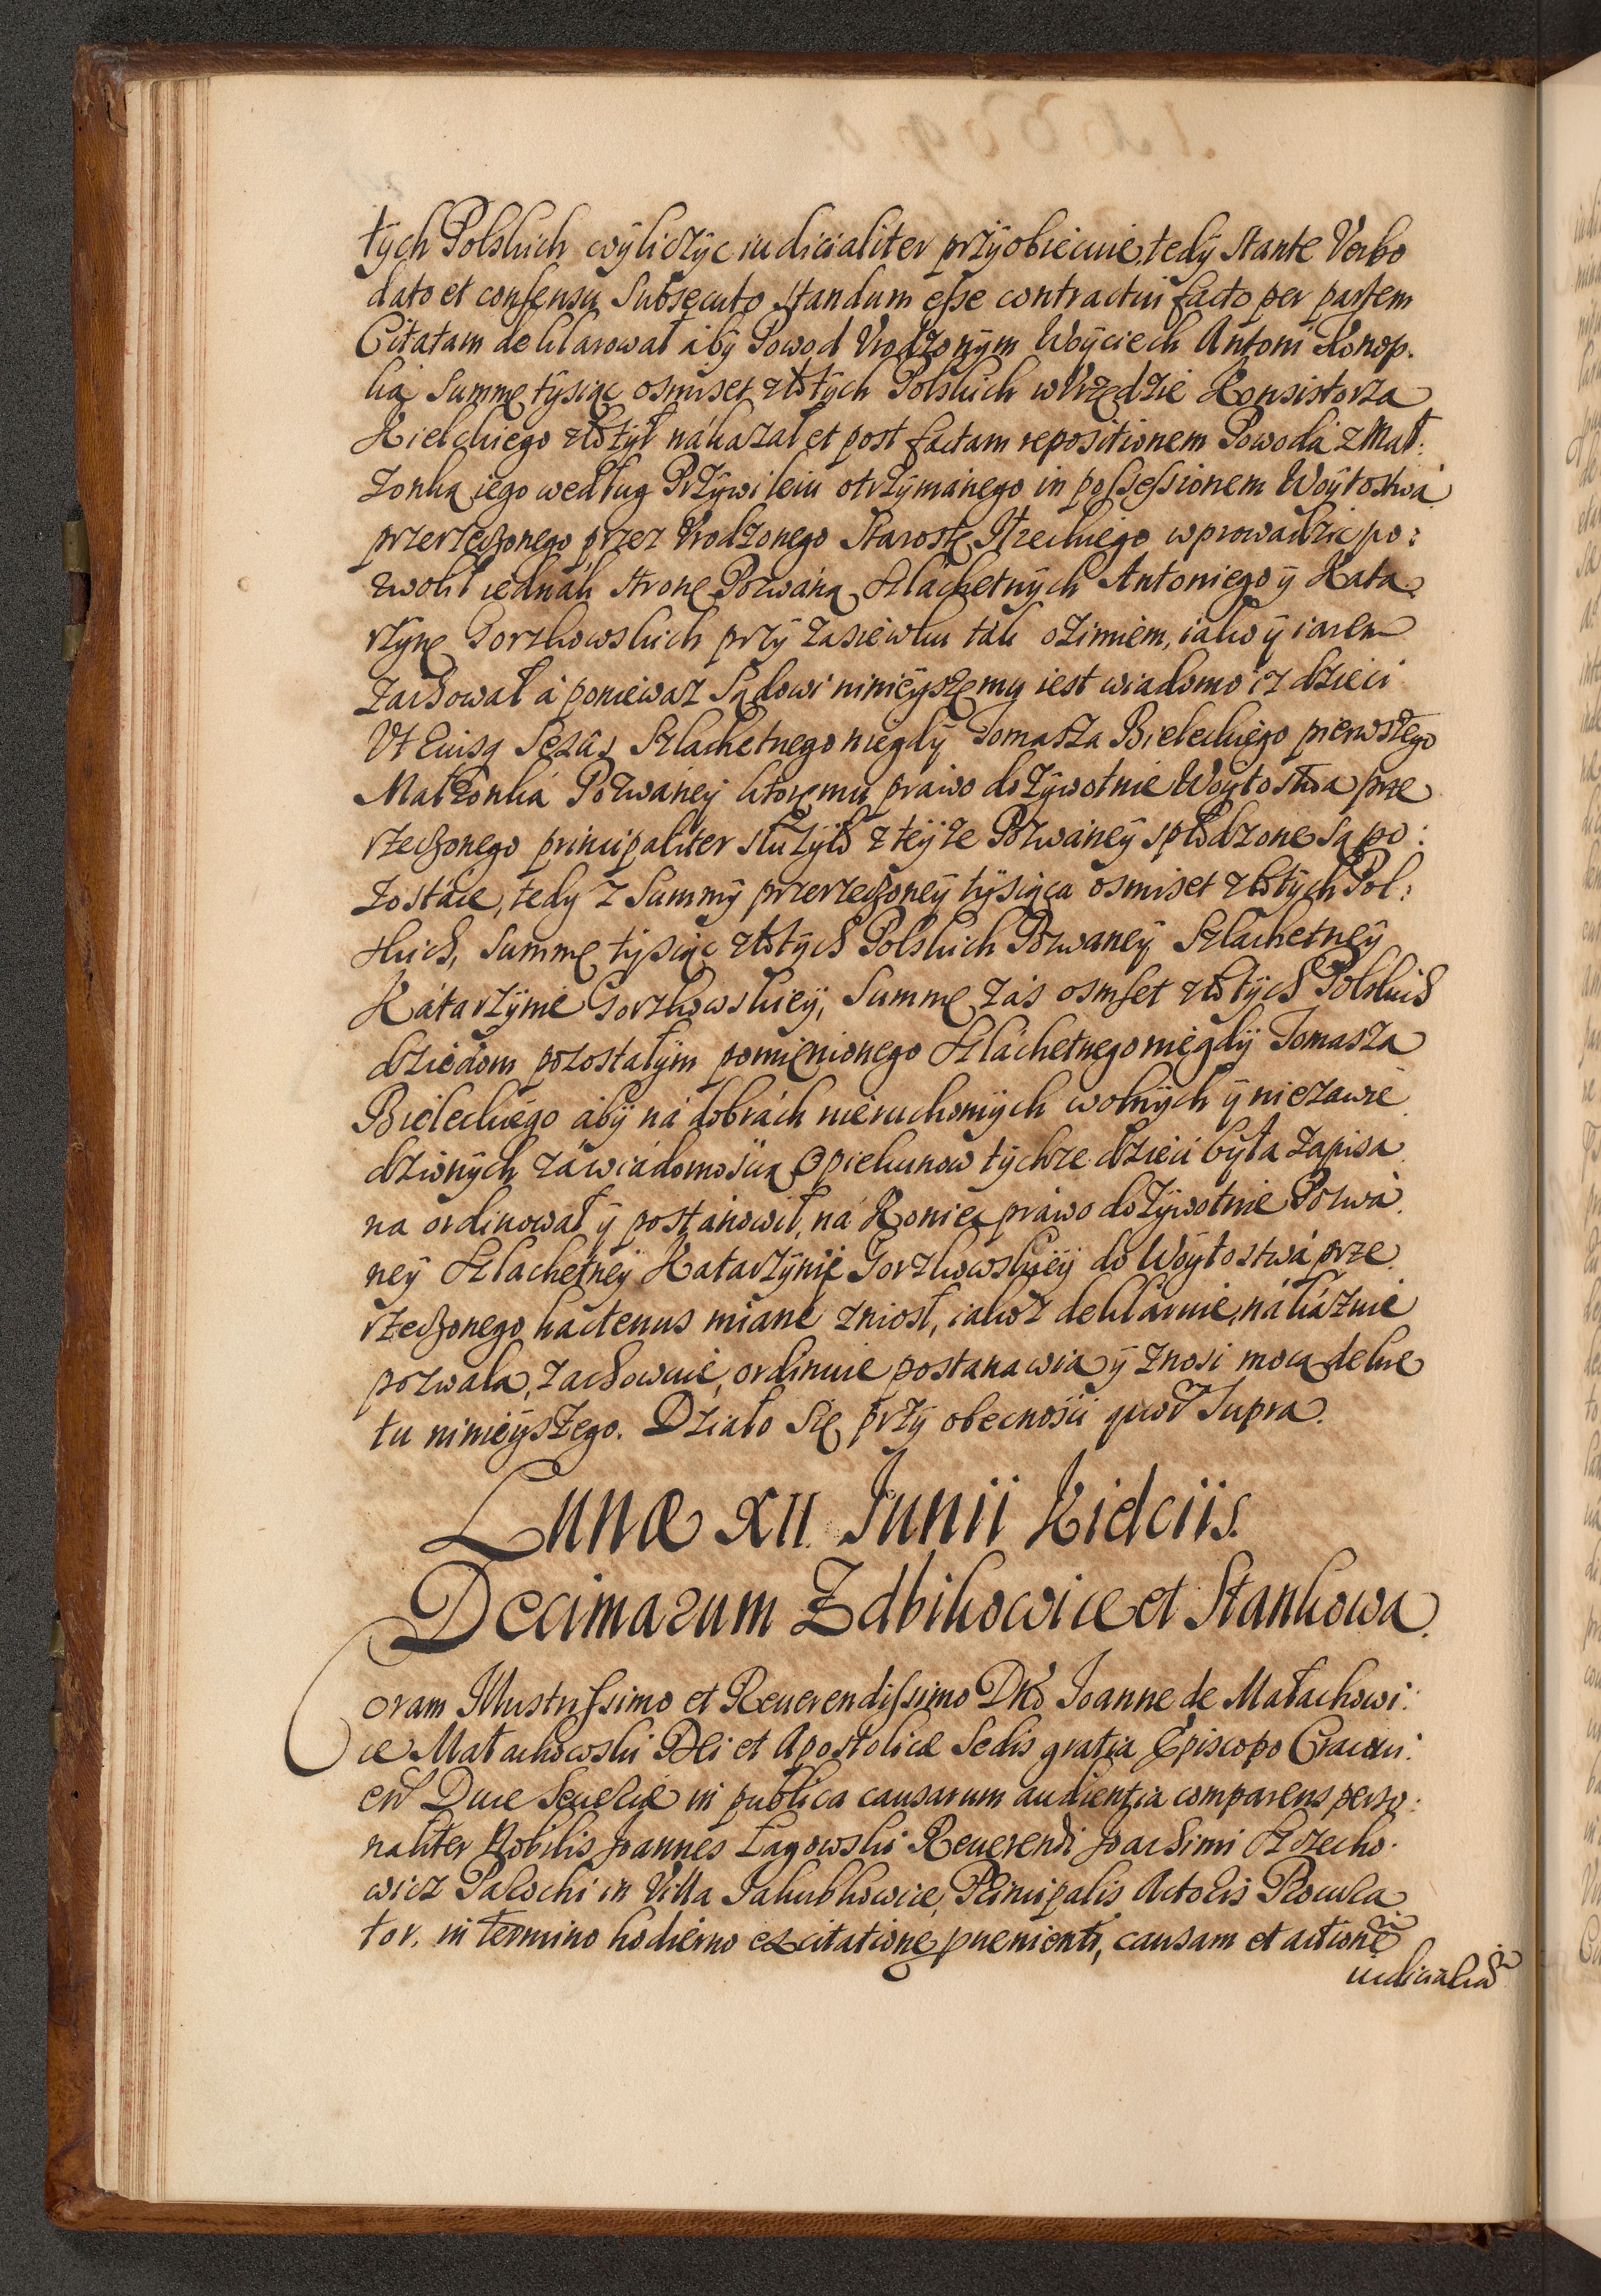 tÿch Polskich wÿliczÿc iudicialiter przÿobiecuie, tedÿ stante Verbo
dato et consensu subsecuto standum esse contractui facto per partem
Citatam deklarował abÿ Powod Vrodzonÿm Woÿciech Antoni Konop.
ka Summę tÿsiąc osmset złotÿch Polskich w Vrzędzie Konsistorza
Kielckiego złożÿł nakazał et post factam repositionem Powoda z Mał:
zonką iego według Przÿwileiu otrzÿmanego in possessionem Woÿtostwa
przerzeczonego przez Vrodzonego Starostę Ilzeckiego wprowadzic po:
zwolił iednak stronę Pozwaną Szlachetnÿch Antoniego ÿ Kata:
rzÿnę Gorzkowskich przÿ zasiewku tak ozimiem, iako ÿ iarem
zachował á poniewaz Sądowi ninieÿszemu iest wiadomo iz dzieci
Szlachetnego niegdÿ Tomasza Bieleckiego pierwszego
Małżonka Pozwaneÿ ktoremu prawo dożÿwotnie Woÿtostwa prze
rzeczonego principaliter służÿło z teÿze Pozwaneÿ spłodzone są po:
zostałe, tedy z Summÿ przerzeczoneÿ tÿsiąca osmiset złotÿch Pol:
skich, Summę tÿsiąc złotÿch Polskich Pozwaneÿ Szlachetneÿ
Katarzÿnie Gorzkowskieÿ, Summę zás osmset złotÿch Polskich
dzieciom pozostałÿm pomienionego Szlachetnego niegdÿ Tomasza
Bieleckiego abÿ ná dobrách nieruchomÿch wolnÿch ÿ niezawie
dzionÿch zá wiádomoscią Opiekunow tÿchze dzieci bÿła zapisa
na ordinował ÿ postánowił, ná Koniec práwo dożÿwotnie Pozwá
neÿ Szlachetneÿ Katarzÿnie Gorzkowskieÿ do Woÿtostwá prze
rzeczonego hactenus miané zniosł, iakoz deklaruie, nakázuie
pozwala, zachowuie, ordinuie postanawia ÿ znosi mocą dekre
tu ninieÿszego. Działo się przÿ obecnosci quor Supra.
Lunæ XII. Junii Kielciis.
Decimarum Zdbikowice et Stankowa.
Coram Illustrissimo et Reuerendissimo Dno Joanne de Małachowi:
ce Małachowski Dei et Apostolicæ Sedis gratia Episcopo Cracoui:
en Duce Seueriæ in publica causarum audientia comparens perso:
naliter Nobilis Joannes Łagowski Reuerendi Joachimi Szzecho.
wicz Parochi in Villa Jakubkowice, Principalis Actoris Procura
tor, in termino hodierno ex citatione puenienti, causam et actione
iudicialia